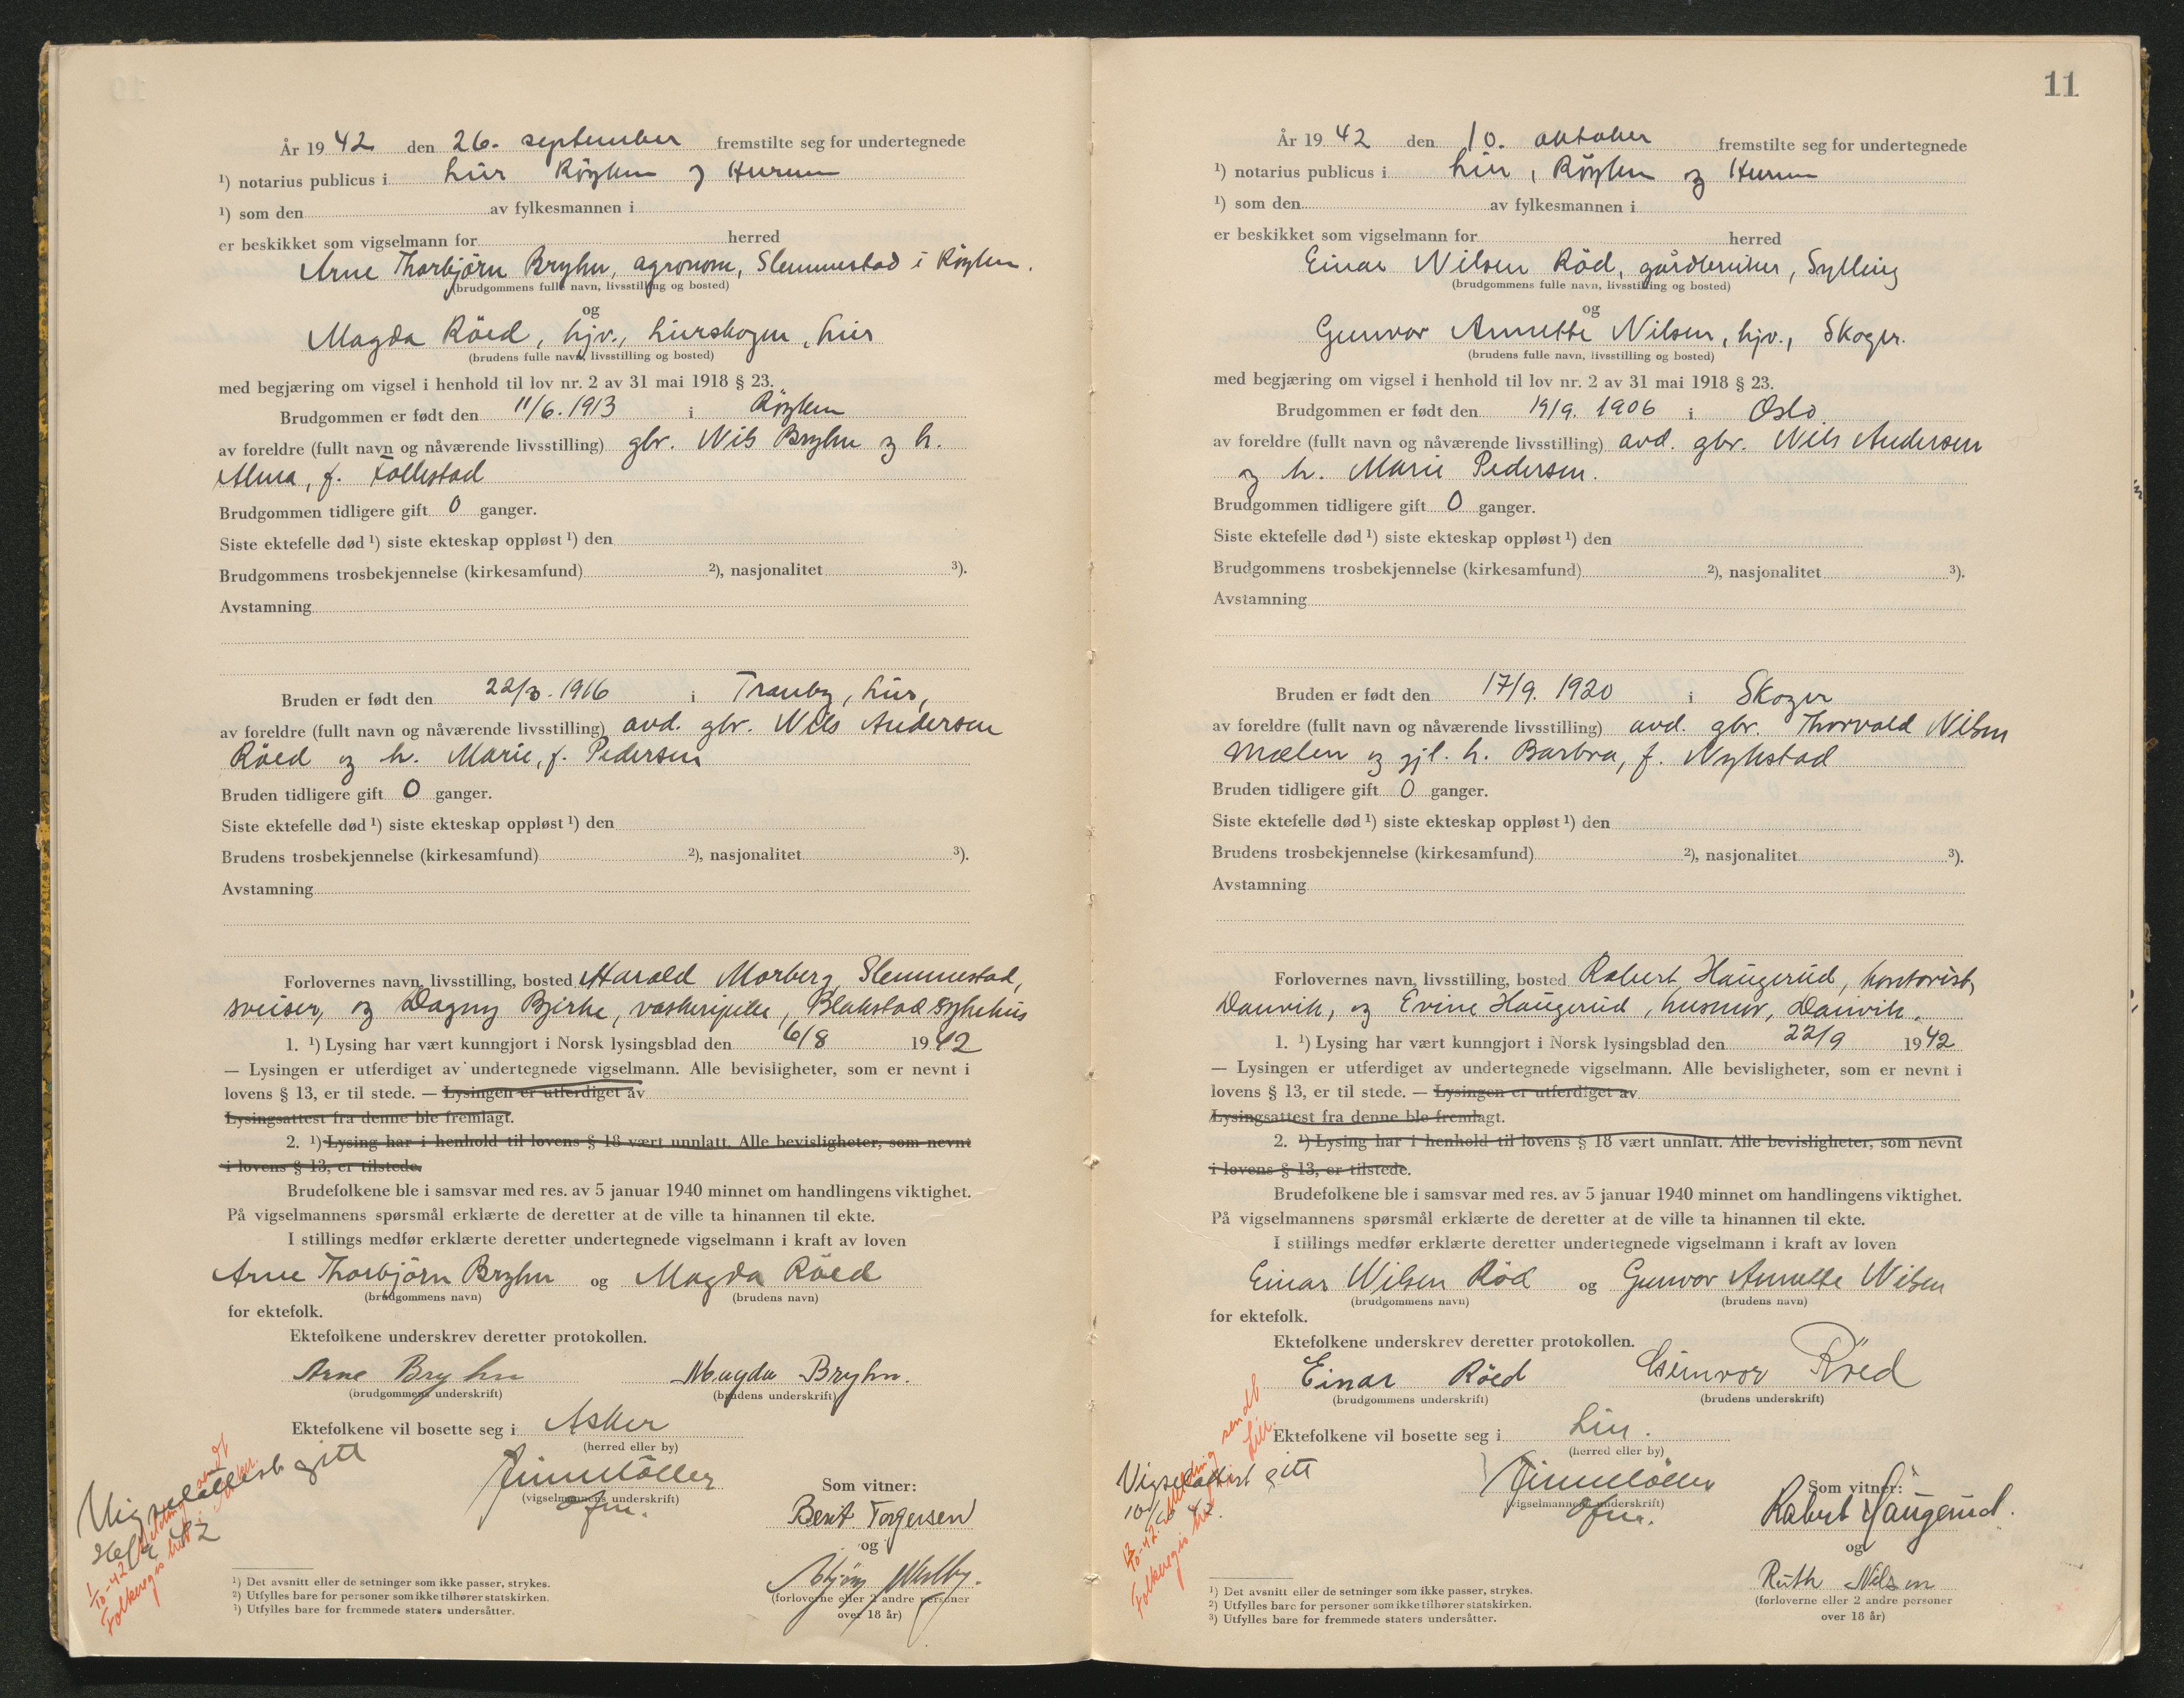 År 19 42 den 26. september fremstilte seg for undertegnede
¹) notarius publicus i Lier Röyken og Hurum
¹) som den av fylkesmannen i
er beskikket som vigselmann for herred
Arne Thorbjörn Bryhn, agronom, Slemmestad i Röyken.
(brudgommens fulle navn, livsstilling og bosted)
og
Magda Röed, hjv., Lierskogen, Lier
(brudens fulle navn, livsstilling og bosted)
med begjæring om vigsel i henhold til lov nr. 2 av 31 mai 1918 § 23.
Brudgommen er født den 11/6. 1913 i Röyken
av foreldre (fullt navn og nåværende livsstilling) gbr. Nils Bryhn og h.
Alma, f. Follestad
Brudgommen tidligere gift 0 ganger.
Siste ektefelle død ¹) siste ekteskap oppløst ¹) den
Brudgommens trosbekjennelse (kirkesamfund) ²), nasjonalitet ³).
Avstamning
Bruden er født den 22/3. 1916 i Tranby, Lier,
av foreldre (fullt navn og nåværende livsstilling) avd. gbr. Nils Andersen
Röed og h. Marie, f. Pedersen
Bruden tidligere gift 0 ganger.
Siste ektefelle død ¹) siste ekteskap oppløst ¹) den
Brudens trosbekjennelse (kirkesamfund) ²), nasjonalitet ³).
Avstamning
Forlovernes navn, livsstilling, bosted Harald Morberg, Slemmestad,
sveiser, og Dagny Bjerke, vaskeripike, Blakstad sykehus
1. ¹) Lysing har vært kunngjort i Norsk lysingsblad den 6/8 1942
— Lysingen er utferdiget av undertegnede vigselmann. Alle bevisligheter, som er nevnt i
lovens § 13, er til stede. — Lysingen er utferdiget av
Lysingsattest fra denne ble fremlagt.
2. ¹) Lysing har i henhold til lovens § 18 vært unnlatt. Alle bevisligheter, som nevnt
i lovens § 13, er tilstede.
Brudefolkene ble i samsvar med res. av 5 januar 1940 minnet om handlingens viktighet.
På vigselmannens spørsmål erklærte de deretter at de ville ta hinannen til ekte.
I stillings medfør erklærte deretter undertegnede vigselmann i kraft av loven
Arne Thorbjörn Bryhn og Magda Röed
(brudgommens navn) (brudens navn)
for ektefolk.
Ektefolkene underskrev deretter protokollen.
Arne Bryhn Magda Bryhn.
(brudgommens underskrift) (brudens underskrift)
Ektefolkene vil bosette seg i Asker
(herred eller by)
Vigselattest gitt
26/9 42
1/10-42 Melding sendt
Folkereg. i Asker.
(vigselmannens underskrift)
ofm.
Som vitner:
Berit Torgersen
og
(forloverne eller 2 andre personer
over 18 år)
¹) Det avsnitt eller de setninger som ikke passer, strykes.
²) Utfylles bare for personer som ikke tilhører statskirken.
³) Utfylles bare for fremmede staters undersåtter.
11
År 19 42 den 10. oktober fremstilte seg for undertegnede
¹) notarius publicus i Lier, Röyken og Hurum
¹) som den av fylkesmannen i
er beskikket som vigselmann for herred
Einar Nilsen Röd, gårdbruker, Sylling
(brudgommens fulle navn, livsstilling og bosted)
og
Gunvor Annette Nilsen, hjv., Skoger.
(brudens fulle navn, livsstilling og bosted)
med begjæring om vigsel i henhold til lov nr. 2 av 31 mai 1918 § 23.
Brudgommen er født den 19/9. 1906 i Oslo.
av foreldre (fullt navn og nåværende livsstilling) avd. gbr. Nils Andersen
og h. Marie Pedersen.
Brudgommen tidligere gift 0 ganger.
Siste ektefelle død ¹) siste ekteskap oppløst ¹) den
Brudgommens trosbekjennelse (kirkesamfund) ²), nasjonalitet ³).
Avstamning
Bruden er født den 17/9. 1920 i Skoger
av foreldre (fullt navn og nåværende livsstilling) avd. gbr. Thorvald Nilsen
Mælen og gjl. h. Barbra, f. Nykstad
Bruden tidligere gift 0 ganger.
Siste ektefelle død ¹) siste ekteskap oppløst ¹) den
Brudens trosbekjennelse (kirkesamfund) ²), nasjonalitet ³).
Avstamning
Forlovernes navn, livsstilling, bosted Robert Haugerud, kontorist,
Danvik, og Evine Haugerud, husmor, Danvik.
1. ¹) Lysing har vært kunngjort i Norsk lysingsblad den 22/9 1942
— Lysingen er utferdiget av undertegnede vigselmann. Alle bevisligheter, som er nevnt i
lovens § 13, er til stede. — Lysingen er utferdiget av
Lysingsattest fra denne ble fremlagt.
2. ¹) Lysing har i henhold til lovens § 18 vært unnlatt. Alle bevisligheter, som nevnt
i lovens § 13, er tilstede.
Brudefolkene ble i samsvar med res. av 5 januar 1940 minnet om handlingens viktighet.
På vigselmannens spørsmål erklærte de deretter at de ville ta hinannen til ekte.
I stillings medfør erklærte deretter undertegnede vigselmann i kraft av loven
Einar Nilsen Röd og Gunvor Annette Nilsen
(brudgommens navn) (brudens navn)
for ektefolk.
Ektefolkene underskrev deretter protokollen.
Einar Röed Gunvor Röed
(brudgommens underskrift) (brudens underskrift)
Ektefolkene vil bosette seg i Lier.
(herred eller by)
Vigselattest gitt
10/10 42.
12/10-42. Melding sendt
Folkeregistret i Lier.
(vigselmannens underskrift)
ofm.
Som vitner:
Robert Haugerud.
og
Ruth Nilsen
(forloverne eller 2 andre personer
over 18 år)
¹) Det avsnitt eller de setninger som ikke passer, strykes.
²) Utfylles bare for personer som ikke tilhører statskirken.
³) Utfylles bare for fremmede staters undersåtter.